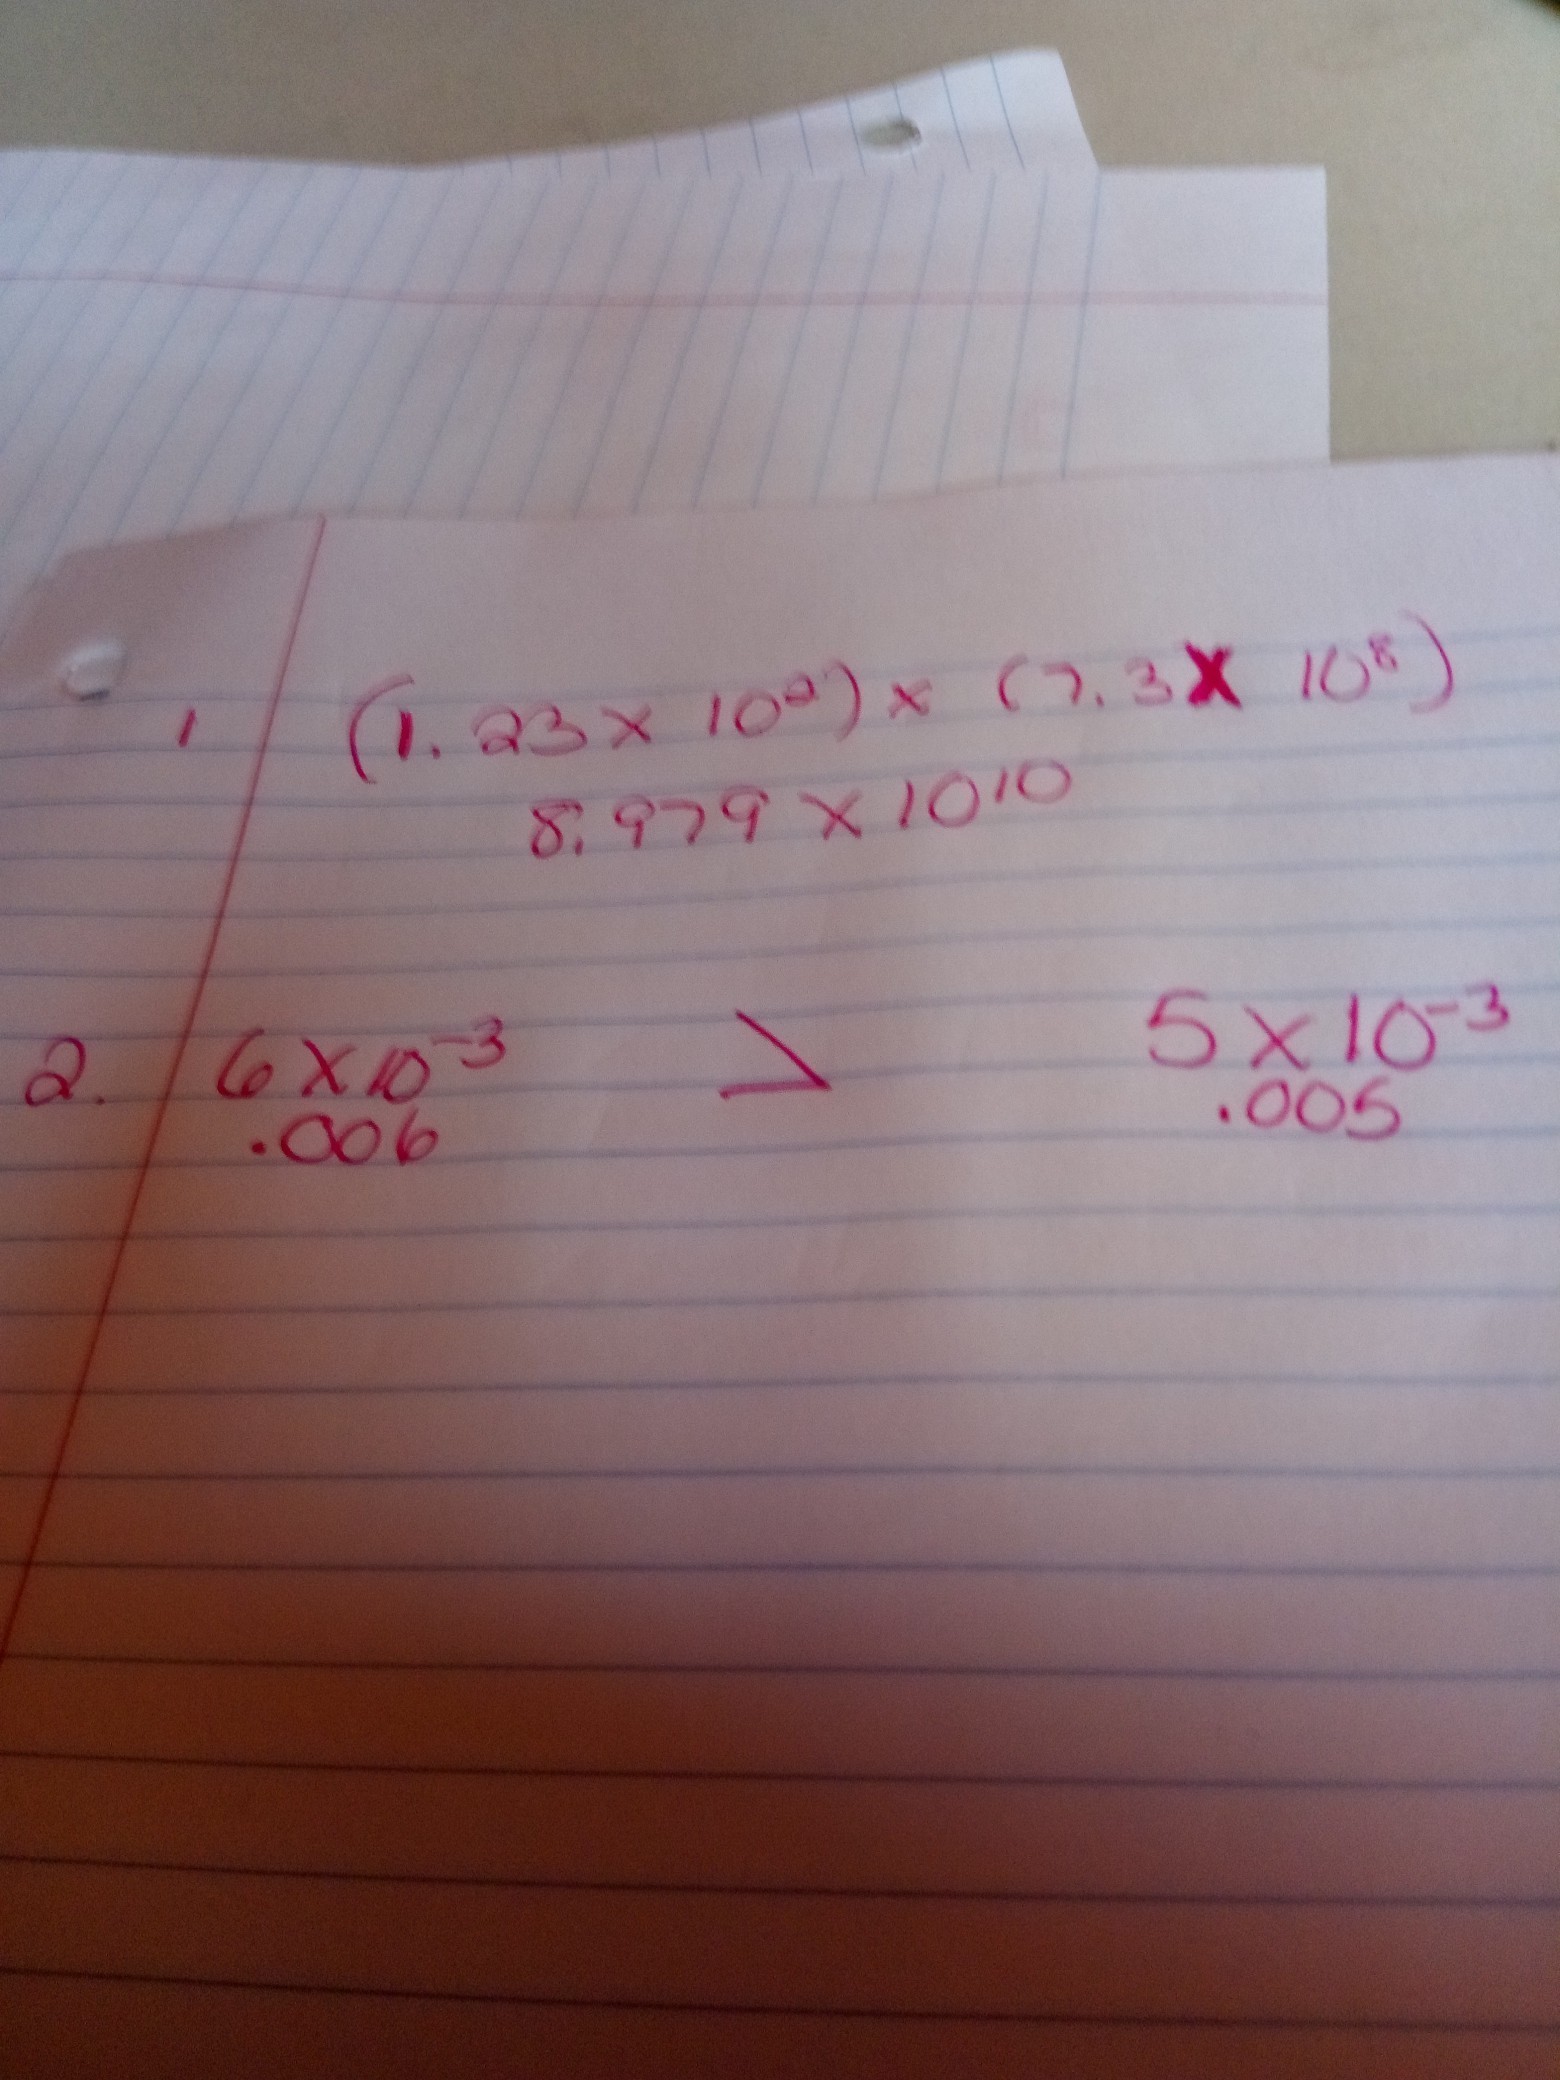 1 (1.23 x 10²) x (7.3 x 10⁸)
8.979 x 10¹⁰
2. 6 x 10⁻³ > 5 x 10⁻³
.006 .005